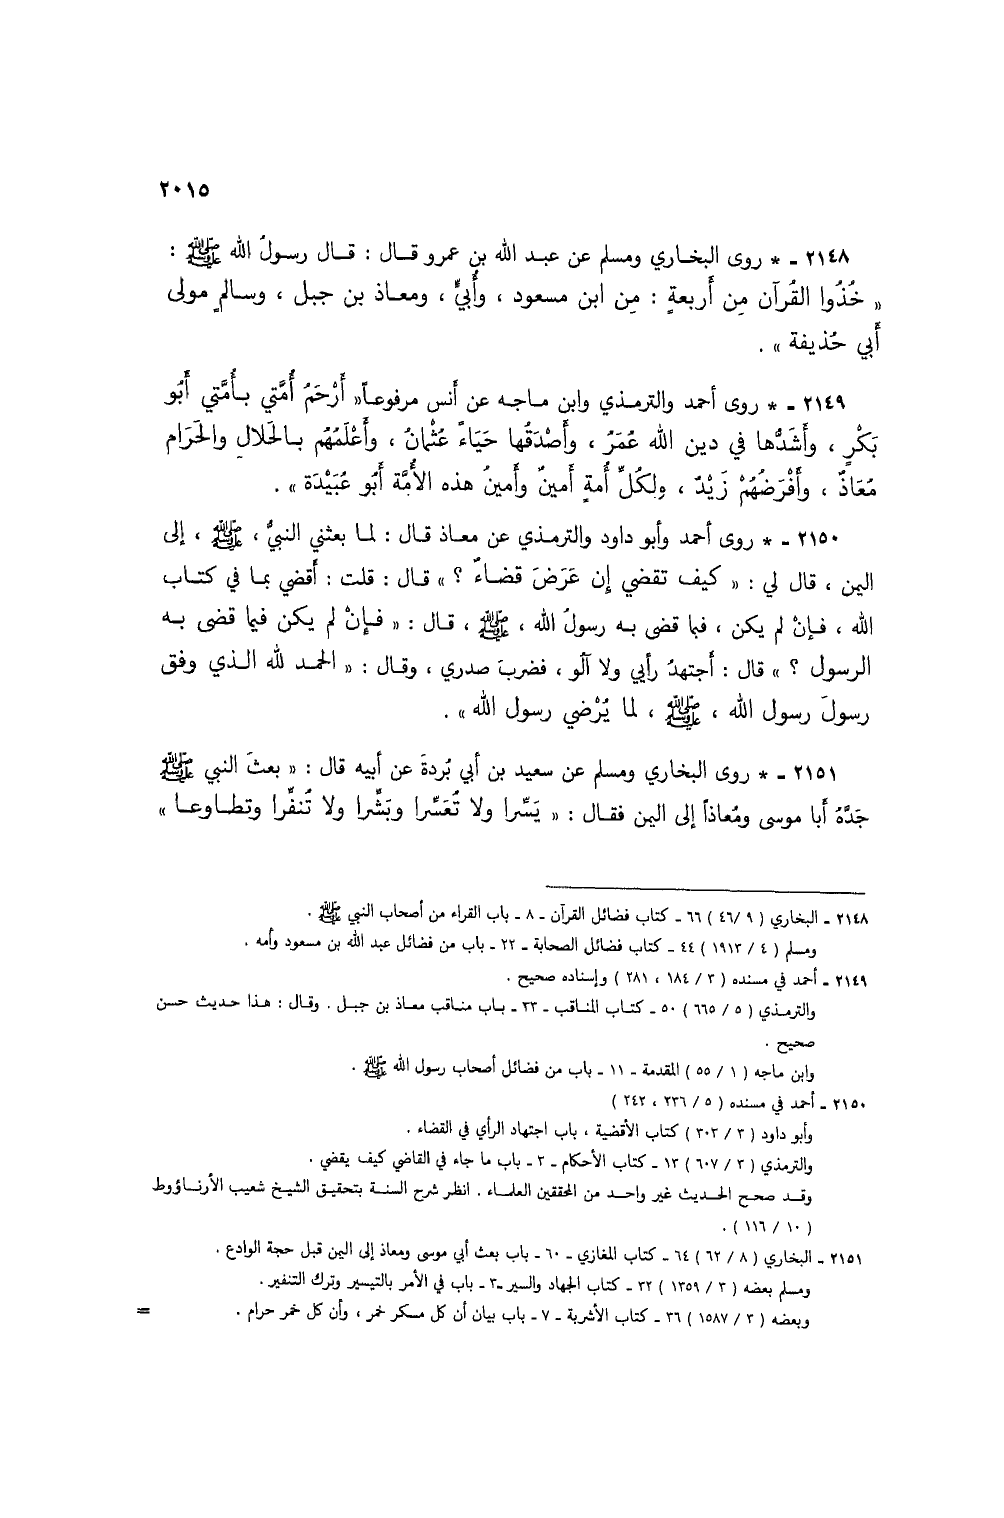 ٢٠١٥
٢١٤٨ ـ * روى البخاري ومسلم عن عبد الله بن عمرو قال : قال رسولُ الله ﷺ :
« خُذُوا القُرآن مِن أَربعةٍ : مِن ابن مسعود ، وأُبيٍّ ، ومعاذ بن جبل ، وسالمٍ مولى
أَبي حُذيفة » .
٢١٤٩ ـ * روى أحمد والترمذي وابن ماجه عن أَنس مرفوعاً« أَرْحَمُ أُمَّتي بأُمَّتي أَبُو
بَكْرٍ ، وأَشَدُّها في دين الله عُمَرُ ، وأَصْدَقُها حَيَاءً عُثْمانُ ، وأَعْلَمُهُم بالحَلال والحَرَام
مُعَاذٌ ، وأَفْرَضُهُمْ زَيْدٌ ، ولكُلِّ أُمةٍ أَمينٌ وأَمينُ هذه الأُمَّة أَبُو عُبَيْدَة » .
٢١٥٠ ـ * روى أحمد وأبو داود والترمذي عن معاذ قال : لما بعثني النبيُّ ، ﷺ ، إلى
اليمن ، قال لي : « كيف تقضي إن عَرَضَ قضاءٌ ؟ » قال : قلت : أَقضي بما في كتاب
الله ، فإنْ لم يكن ، فبما قضى به رسولُ الله ، ﷺ ، قال : « فإنْ لم يكن فيما قضى به
الرسول ؟ » قال : أجتهدُ رأيي ولا آلُو ، فضربَ صدري ، وقال : « الحمد لله الذي وفق
رسولَ رسول الله ، ﷺ ، لما يُرْضي رسول الله » .
٢١٥١ ـ * روى البخاري ومسلم عن سعيد بن أبي بُردةَ عن أبيه قال : « بعثَ النبي ﷺ
جَدَّهُ أبا موسى ومُعاذاً إلى اليمن فقال : « يَسِّرا ولا تُعَسِّرا وبَشِّرا ولا تُنفِّرا وتطاوعا »
٢١٤٨ ـ البخاري ( ٩ /٤٦ ) ٦٦ ـ كتاب فضائل القرآن ـ ٨ ـ باب القراء من أصحاب النبي ﷺ .
ومسلم ( ٤ / ١٩١٣ ) ٤٤ ـ كتاب فضائل الصحابة ـ ٢٢ ـ باب من فضائل عبد الله بن مسعود وأمه .
٢١٤٩ ـ أحمد في مسنده ( ٣ / ١٨٤ ، ٢٨١ ) وإسناده صحيح .
والترمذي ( ٥ / ٦٦٥ ) ٥٠ ـ كتاب المناقب ـ ٣٣ ـ باب مناقب معاذ بن جبل . وقال : هذا حديث حسن
صحيح .
وابن ماجه ( ١ / ٥٥ ) المقدمة ـ ١١ ـ باب من فضائل أصحاب رسول الله ﷺ .
٢١٥٠ ـ أحمد في مسنده ( ٥ / ٢٣٦ ، ٢٤٢ )
وأبو داود ( ٣ / ٣٠٣ ) كتاب الأقضية ، باب اجتهاد الرأي في القضاء .
والترمذي ( ٣ / ٦٠٧ ) ١٣ ـ كتاب الأحكام ـ ٣ ـ باب ما جاء في القاضي كيف يقضي .
وقد صحح الحديث غير واحد من المحققين العلماء . انظر شرح السنة بتحقيق الشيخ شعيب الأرناؤوط
( ١٠ / ١١٦ ) .
٢١٥١ ـ البخاري ( ٨ / ٦٢ ) ٦٤ ـ كتاب المغازي ـ ٦٠ ـ باب بعث أبي موسى ومعاذ إلى اليمن قبل حجة الوادع .
ومسلم بعضه ( ٣ / ١٣٥٩ ) ٣٢ ـ كتاب الجهاد والسير ـ٣ ـ باب في الأمر بالتيسير وترك التنفير .
وبعضه ( ٣ / ١٥٨٧ ) ٣٦ ـ كتاب الأشربة ـ ٧ ـ باب بيان أن كل مسكر خمر ، وأن كل خمر حرام . =